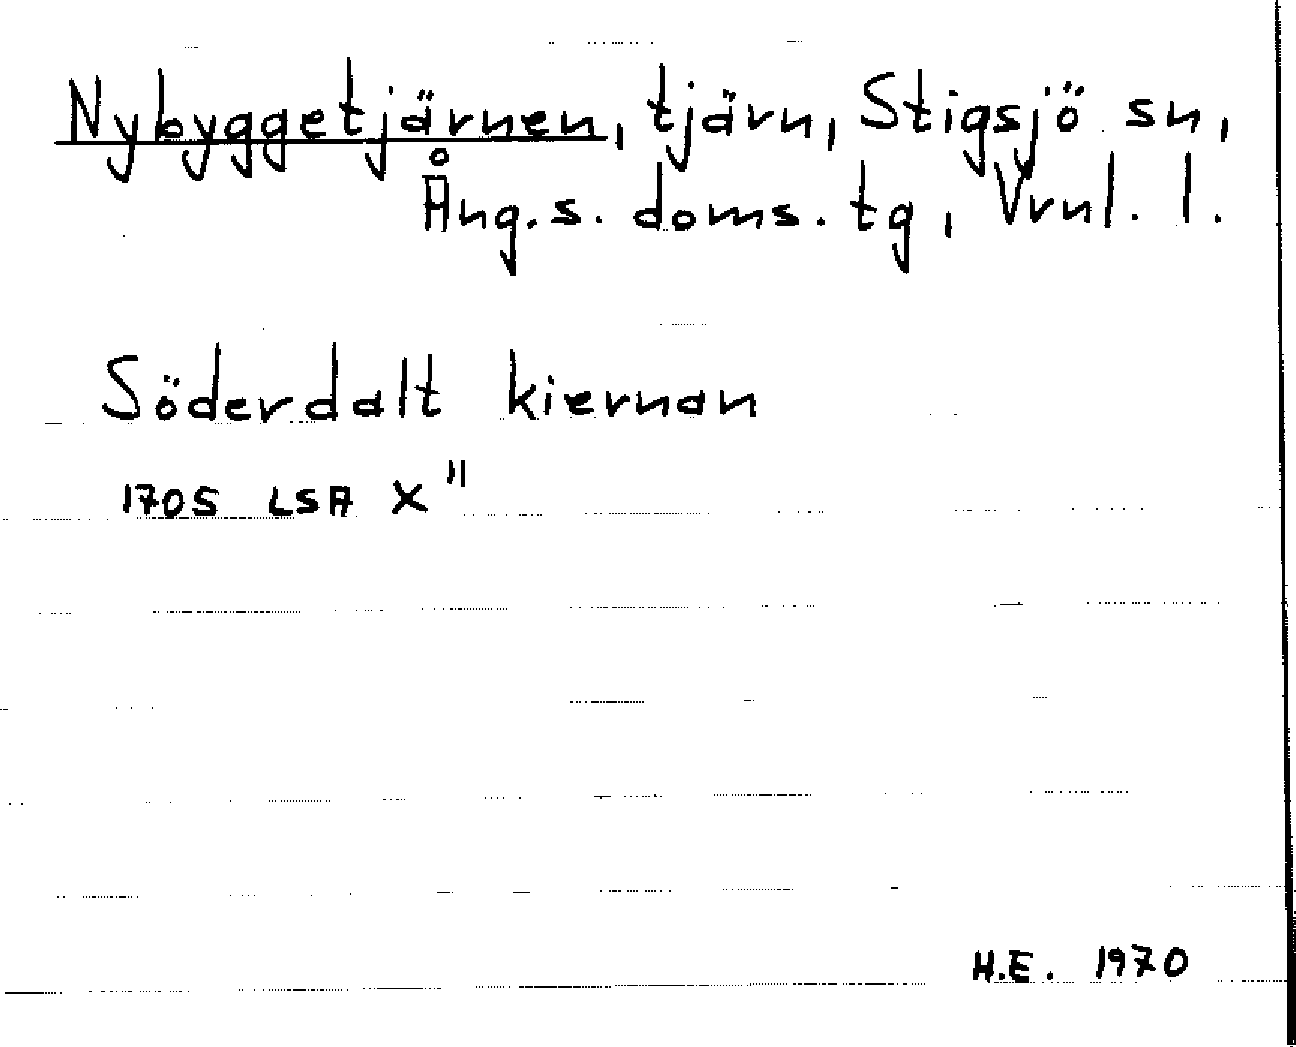 Nybyggetjärnen, tjärn, Stigsjö sn,
Ång.s. doms. tg, Vrnl. l.
Söderdalt kiernan
1705 LSA X"
H.E. 1970